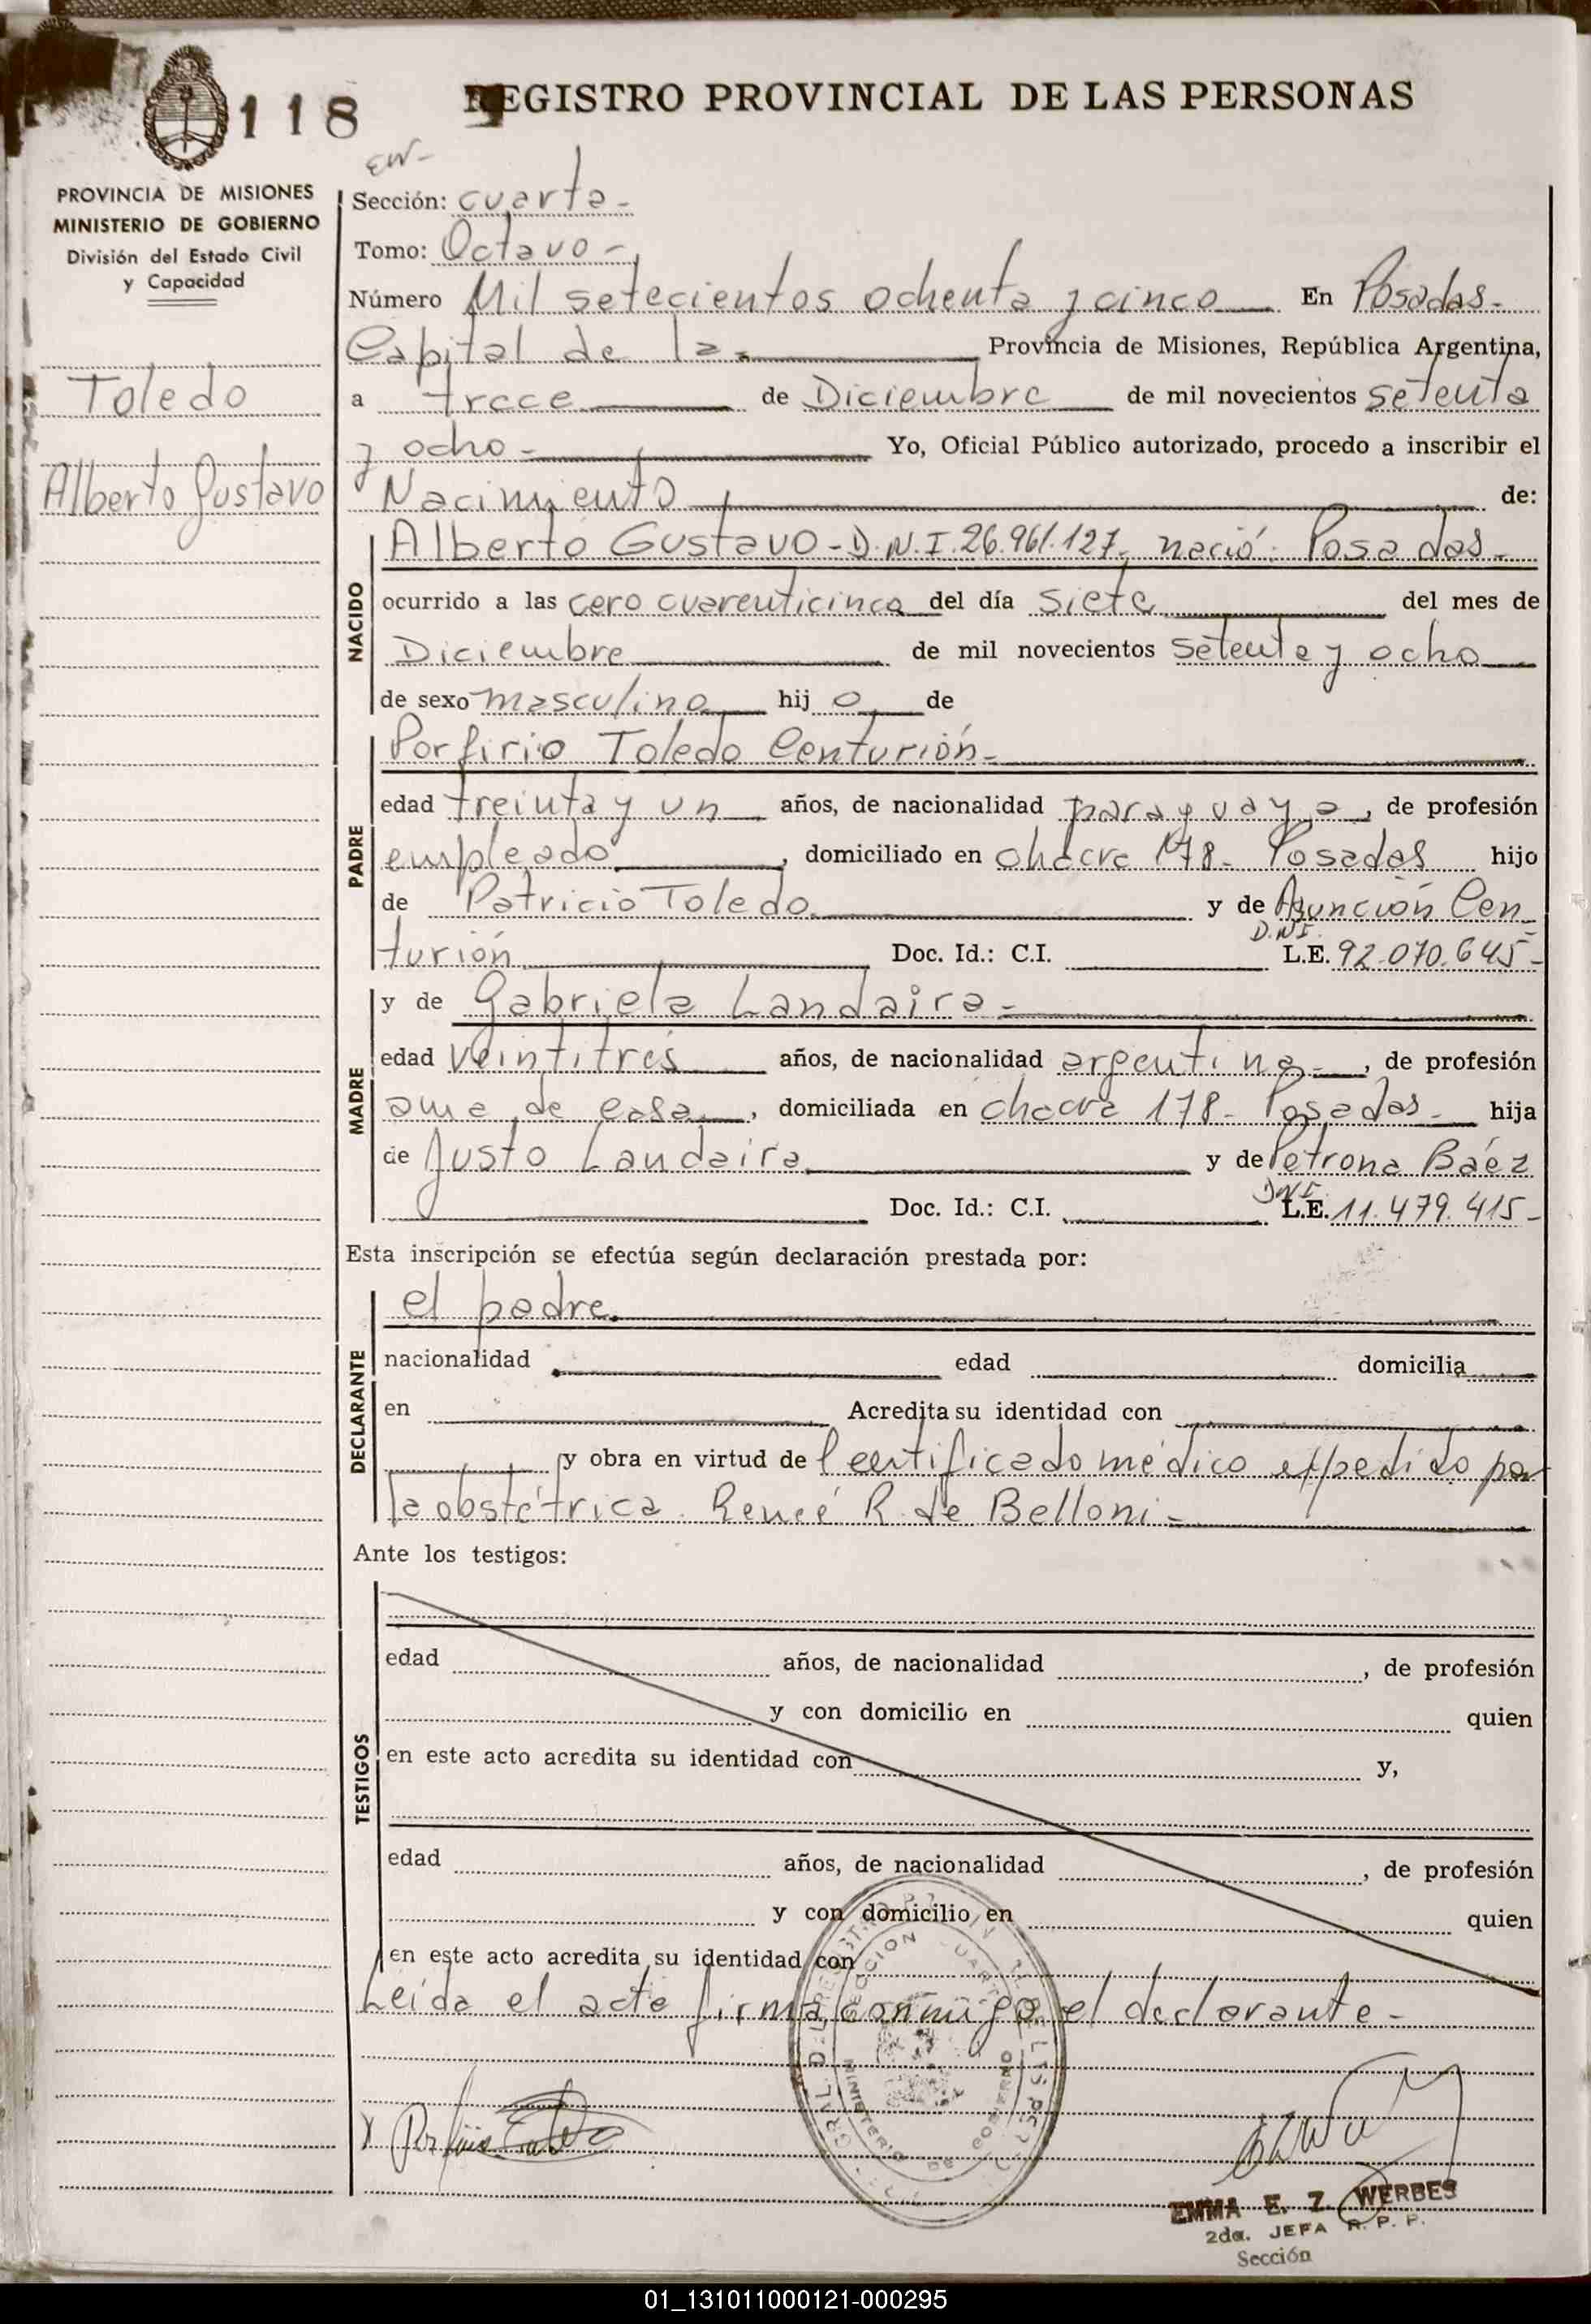 118
REGISTRO PROVINCIAL DE LAS PERSONAS
PROVINCIA DE MISIONES
MINISTERIO DE GOBIERNO
División del Estado Civil
y Capacidad
Toledo
Alberto Gustavo
Sección: cuarta -
Tomo: Octavo -
Número Mil setecientos ochenta y cinco En Posadas -
Capital de la - Provincia de Misiones, República Argentina,
a trece de Diciembre de mil novecientos setenta
y ocho - Yo, Oficial Público autorizado, procedo a inscribir el
Nacimiento de:
NACIDO
Alberto Gustavo - D.N.I. 26.961.127, nació: Posadas -
ocurrido a las cero cuarenticinco del día siete del mes de
Diciembre de mil novecientos setenta y ocho
de sexo masculino hij o de
PADRE
Porfirio Toledo Centurión -
edad treinta y un años, de nacionalidad paraguaya, de profesión
empleado, domiciliado en chacra 178 - Posadas hijo
de Patricio Toledo y de Asunción Cen-
turión Doc. Id.: C.I. D.N.I. L.E. 92.070.645 -
MADRE
y de Gabriela Landaira -
edad veintitrés años, de nacionalidad argentina -, de profesión
ama de casa, domiciliada en chacra 178 - Posadas - hija
de Justo Landaira y de Petrona Báez
Doc. Id.: C.I. DNI L.E. 11.479.415 -
Esta inscripción se efectúa según declaración prestada por:
DECLARANTE
el padre.
nacionalidad edad domicilia
en Acredita su identidad con
y obra en virtud de l certificado médico expedido por
la obstétrica Reneé R. de Belloni -
Ante los testigos:
TESTIGOS
edad años, de nacionalidad , de profesión
y con domicilio en quien
en este acto acredita su identidad con y,
edad años, de nacionalidad , de profesión
y con domicilio en quien
en este acto acredita su identidad con
Leída el acta firma conmigo el declarante -
SECCION
MINISTERIO DE GOBIERNO
EMMA E. Z. WERBES
2da. JEFA R. P. P.
Sección
01_131011000121-000295